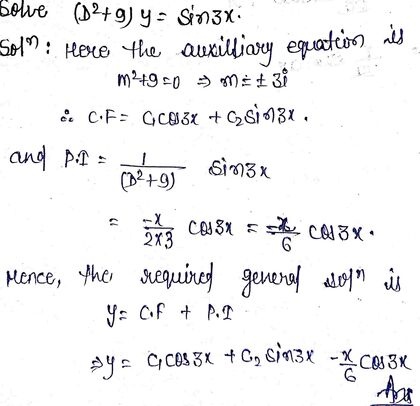 Solve (D²+9) y = Sin3x.
Solⁿ: Here the auxilliary equation is
m²+9=0 ⇒ m=± 3i
∴ C.F= C₁Cos3x + C₂Sin3x.
and P.I = 1/(D²+9) Sin3x
= -x/2×3 Cos3x = -x/6 Cos3x.
Hence, the required general solⁿ is
y= C.F + P.I
⇒y= C₁Cos3x + C₂ Sin3x -x/6 Cos3x
Ans